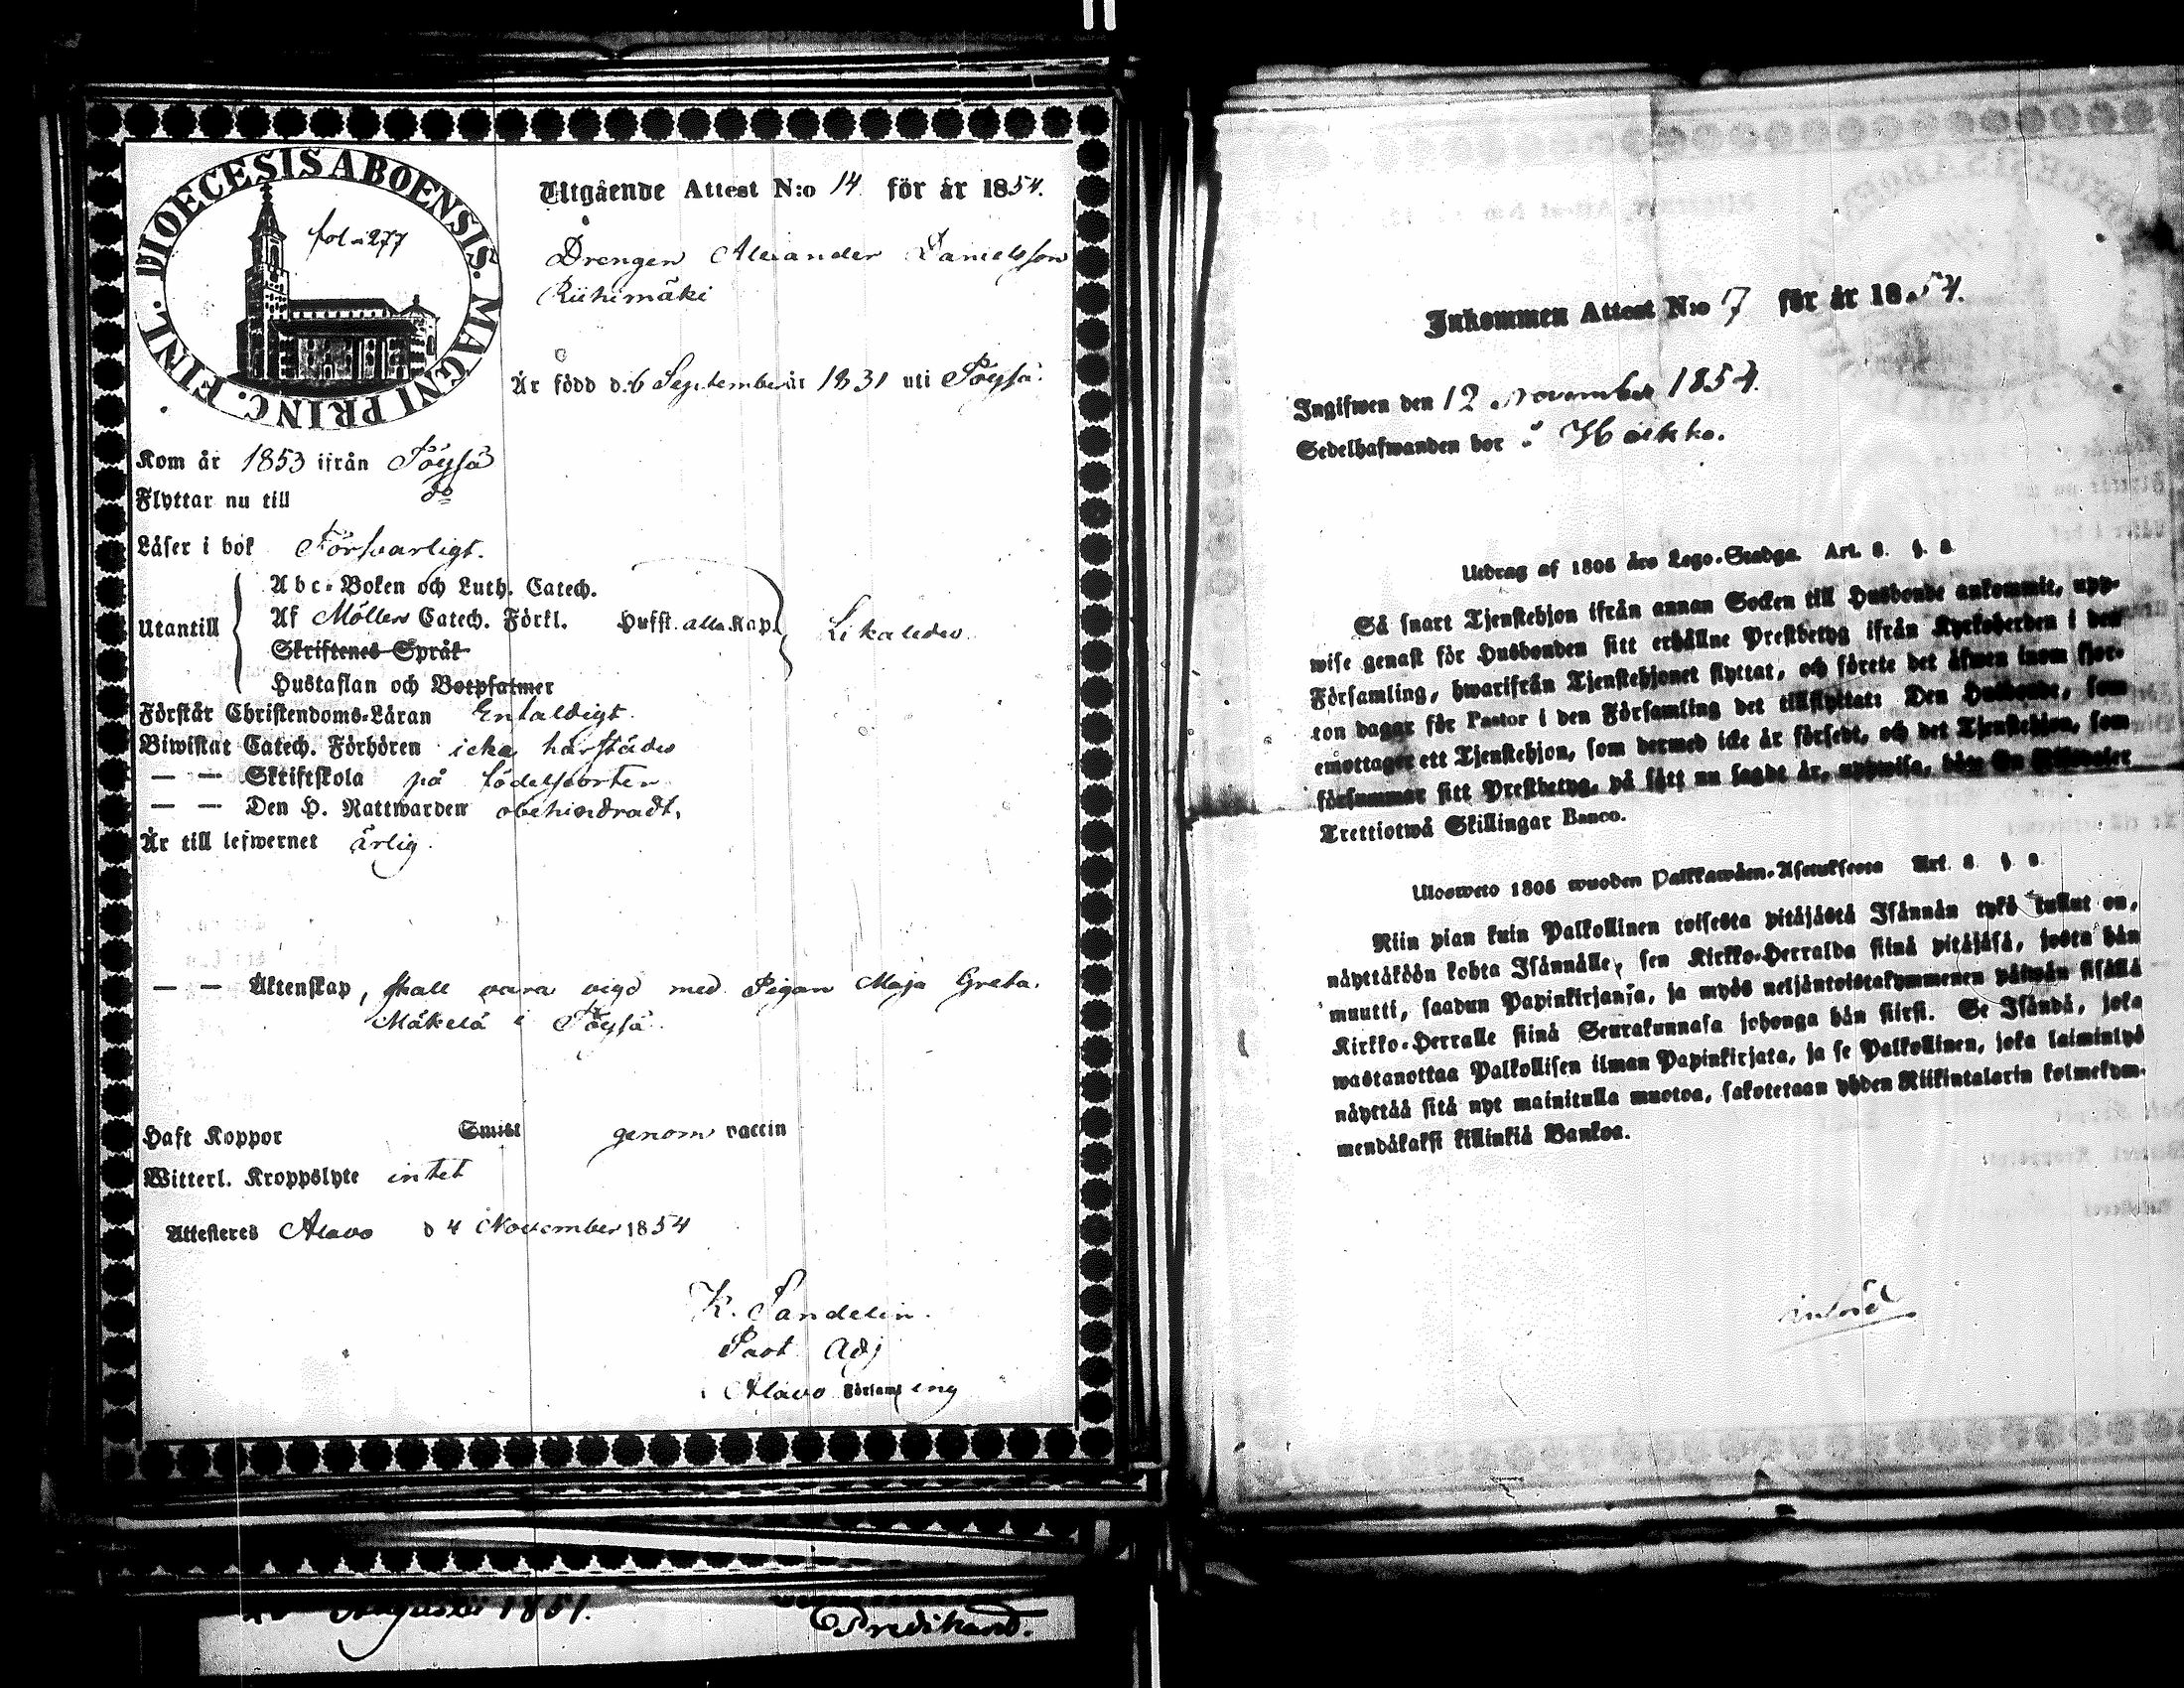 DIOECESIS ABOENSIS. MAGNI PRINC. FINL.
fol. 277
Utgående Attest N:o 14 för år 1854.
Drengen Alexander Danielsson
Riihimäki
Är född d. 6 September år 1831 uti Töysä.
Kom år 1853 ifrån Töysä
Flyttar nu till do
Läser i bok Försvarligt.
Utantill
Abc-Boken och Luth. Catech.
Af Möllers Catech. Förkl. Husst. alla Kap. Likaledes
Skriftenes Språk
Hustaflan och Botpsalmer
Förstår Christendoms-Läran Enfaldigt.
Biwistat Catech. Förhören icke härstädes
— — Skriftskola på födelseorten
— — Den H. Nattwarden obehindradt.
Är till lefwernet ärlig.
— — Äktenskap, skall vara vigd med Pigan Maja Greta
Mäkelä i Töysä.
Haft Koppor Smitt genom vaccin
Witterl. Kroppslyte intet
Attesteres Alavo d 4 November 1854
K. Sandelin.
Past. Adj
i Alavo Församling
Augusti 1851. Predikand.
Inkommen Attest N:o 7 för år 1854.
Ingifwen den 12 November 1854.
Sedelhafwanden bor å Hoikko.
Utdrag af 1805 års Lego-Stadga. Art. 8. §. 8.
Så snart Tjenstehjon ifrån annan Socken till Husbonde ankommit, upp-
wise genast för Husbonden sitt erhållne Prestbetyg ifrån Kyrkoherden i den
Församling, hwarifrån Tjenstehjonet flyttat, och förete det äfwen inom fjor-
ton dagar för Pastor i den Församling det tillflyttat: Den Husbonde, som
emottager ett Tjenstehjon, som dermed icke är försedt, och det Tjenstehjon, som
försummar sitt Prestbetyg, på sätt nu sagdt är, uppwisa, böte En Riksdaler
Trettiotwå Skillingar Banco.
Ulosweto 1805 wuoden Palkkawäen-Asetuksesta Art. 8. §. 8.
Niin pian kuin Palkollinen toisesta pitäjästä Isännän tykö tullut on,
näyttäköön kohta Isännälle, sen Kirkko-Herralda siinä pitäjäsä, josta hän
muutti, saadun Papinkirjansa, ja myös neljäntoistakymmenen päiwän sisällä
Kirkko-Herralle siinä Seurakunnasa johonga hän siirsi. Se Isändä, joka
wastanottaa Palkollisen ilman Papinkirjata, ja se Palkollinen, joka laiminlyö
näyttää sitä nyt mainitulla muotoa, sakotetaan yhden Riikintalarin kolmekym-
mendäkaksi killinkiä Bankoa.
införd